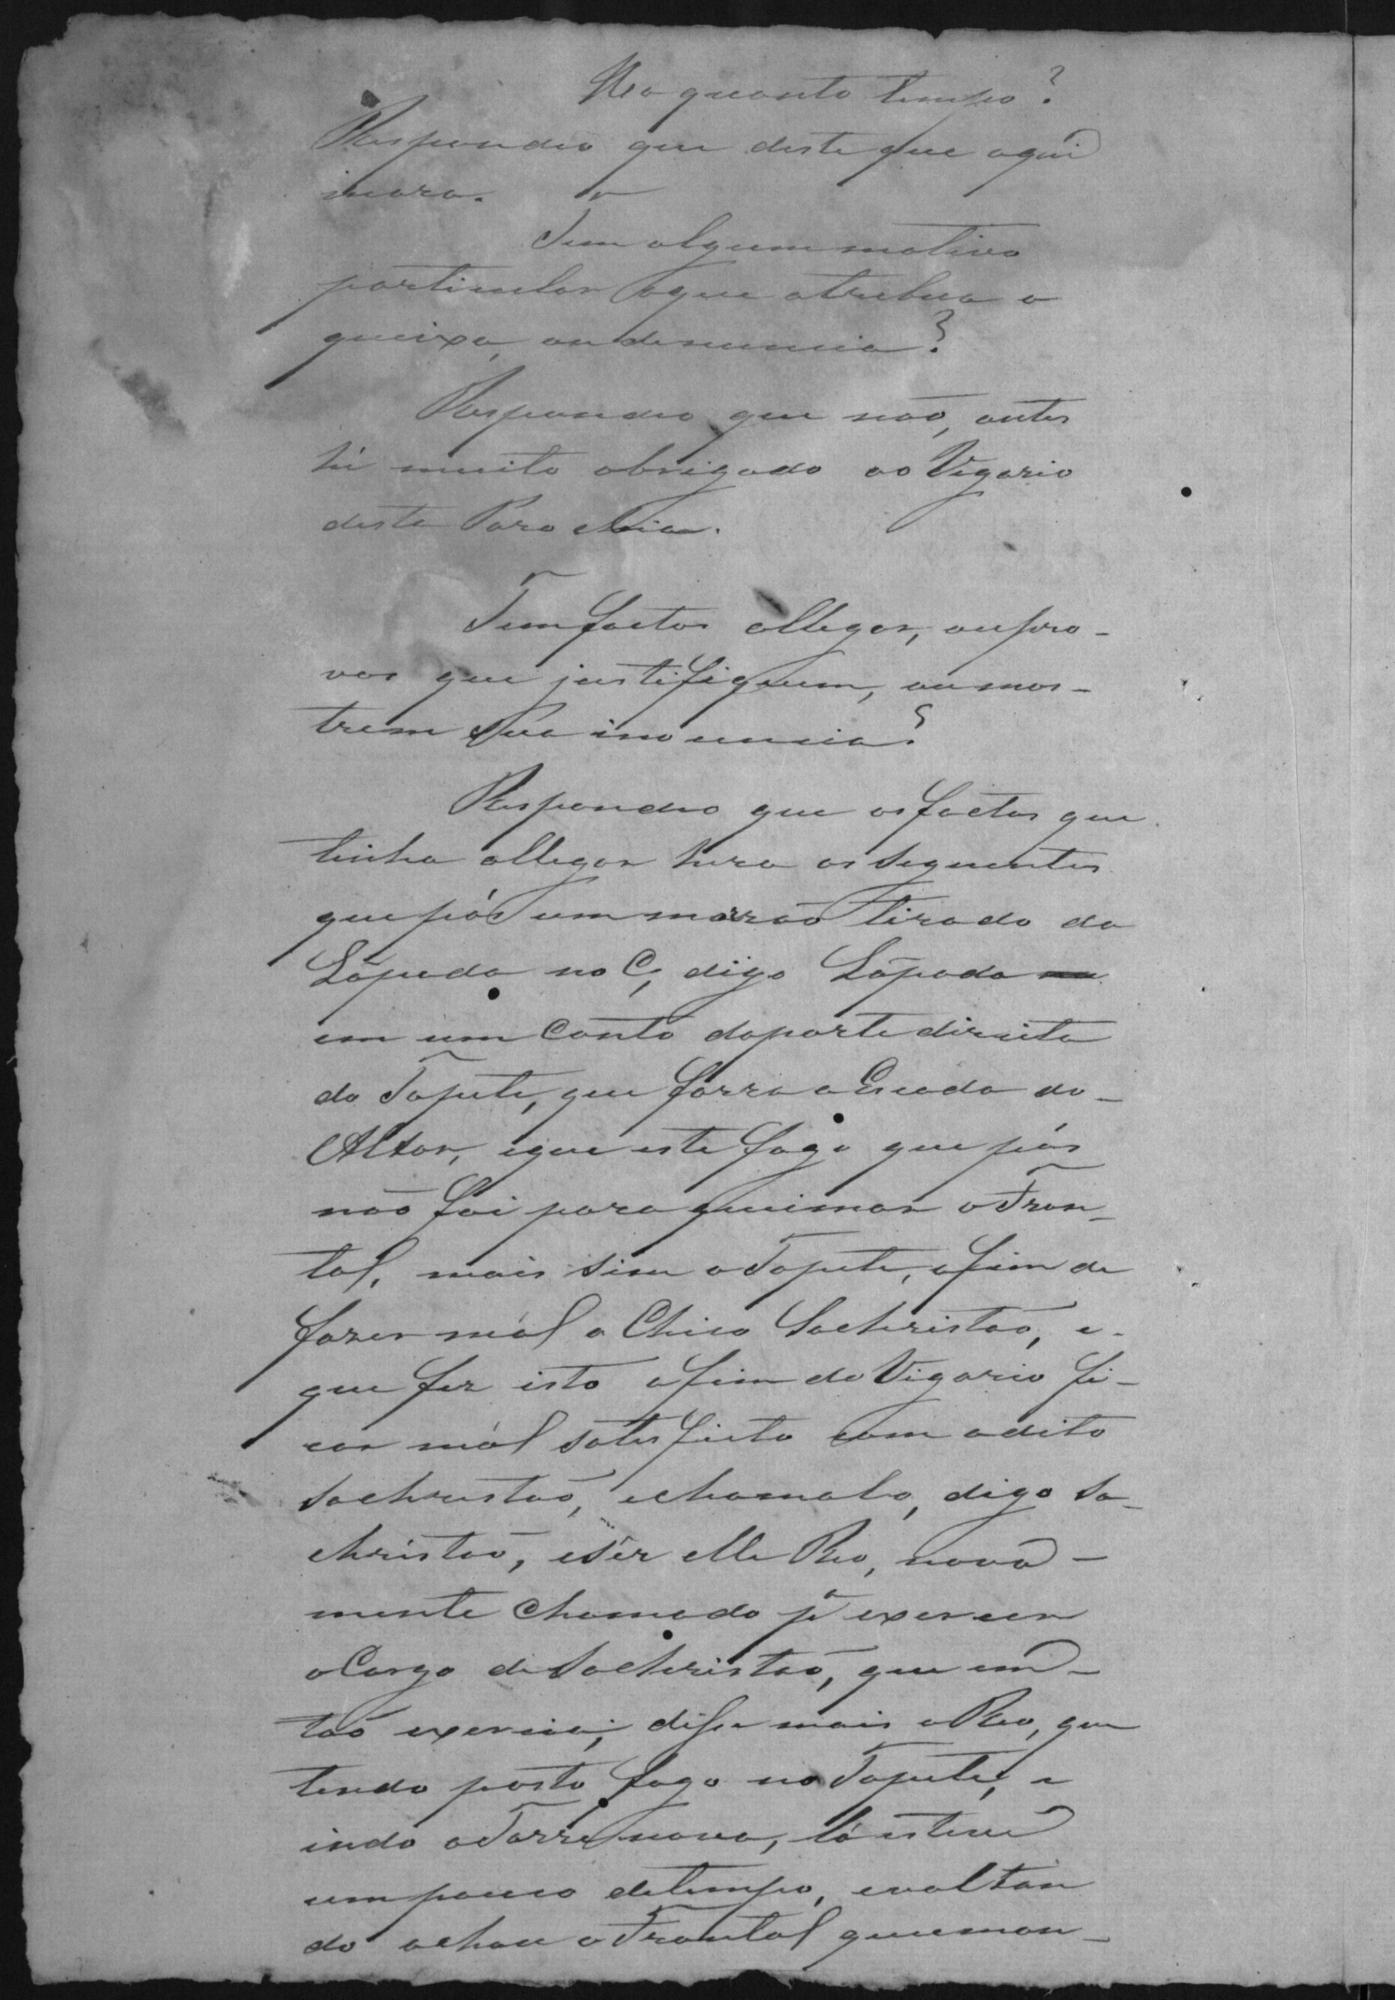 Ha quanto tempo?
Respondeo que deste que aqui
mora.
Tem algum motivo
particular aque atrebua a
queixa, ou denuncia?
Respondeo que não, antes
hé muito obrigado ao Vigario
desta Parochia.
Tem factos allegar, ou pro-
vas que justifiquem, ou mos-
trem sua inocencia?
Respondeo que os factos que
tinha allegar hera os seguentes
que pôs um morrão tirado da
Lãpeda no C, digo Lãpada
em um Canto da parte direita
do Tapete, que forra a Escada do
Altar, eque este fogo que pôs
não foi para queimar o Fron-
tal, mais sim o Tapete, afim de
fazer mál a Chico Sachristão, e
que fez isto afim do Vigario fi-
car mál satesfeito com o dito
Sachristão, e chamalo, digo Sa-
christão, e sêr elle Reo, nova-
mente Chamado pª exercer
o Cargo de Sachristão, que em-
tão exercia; disse mais o Reo, que
tendo posto fogo no Tapete, e
indo a Torre nova, lá esteve
um pouco de tempo, e voltan
do achou o Frontal queiman-